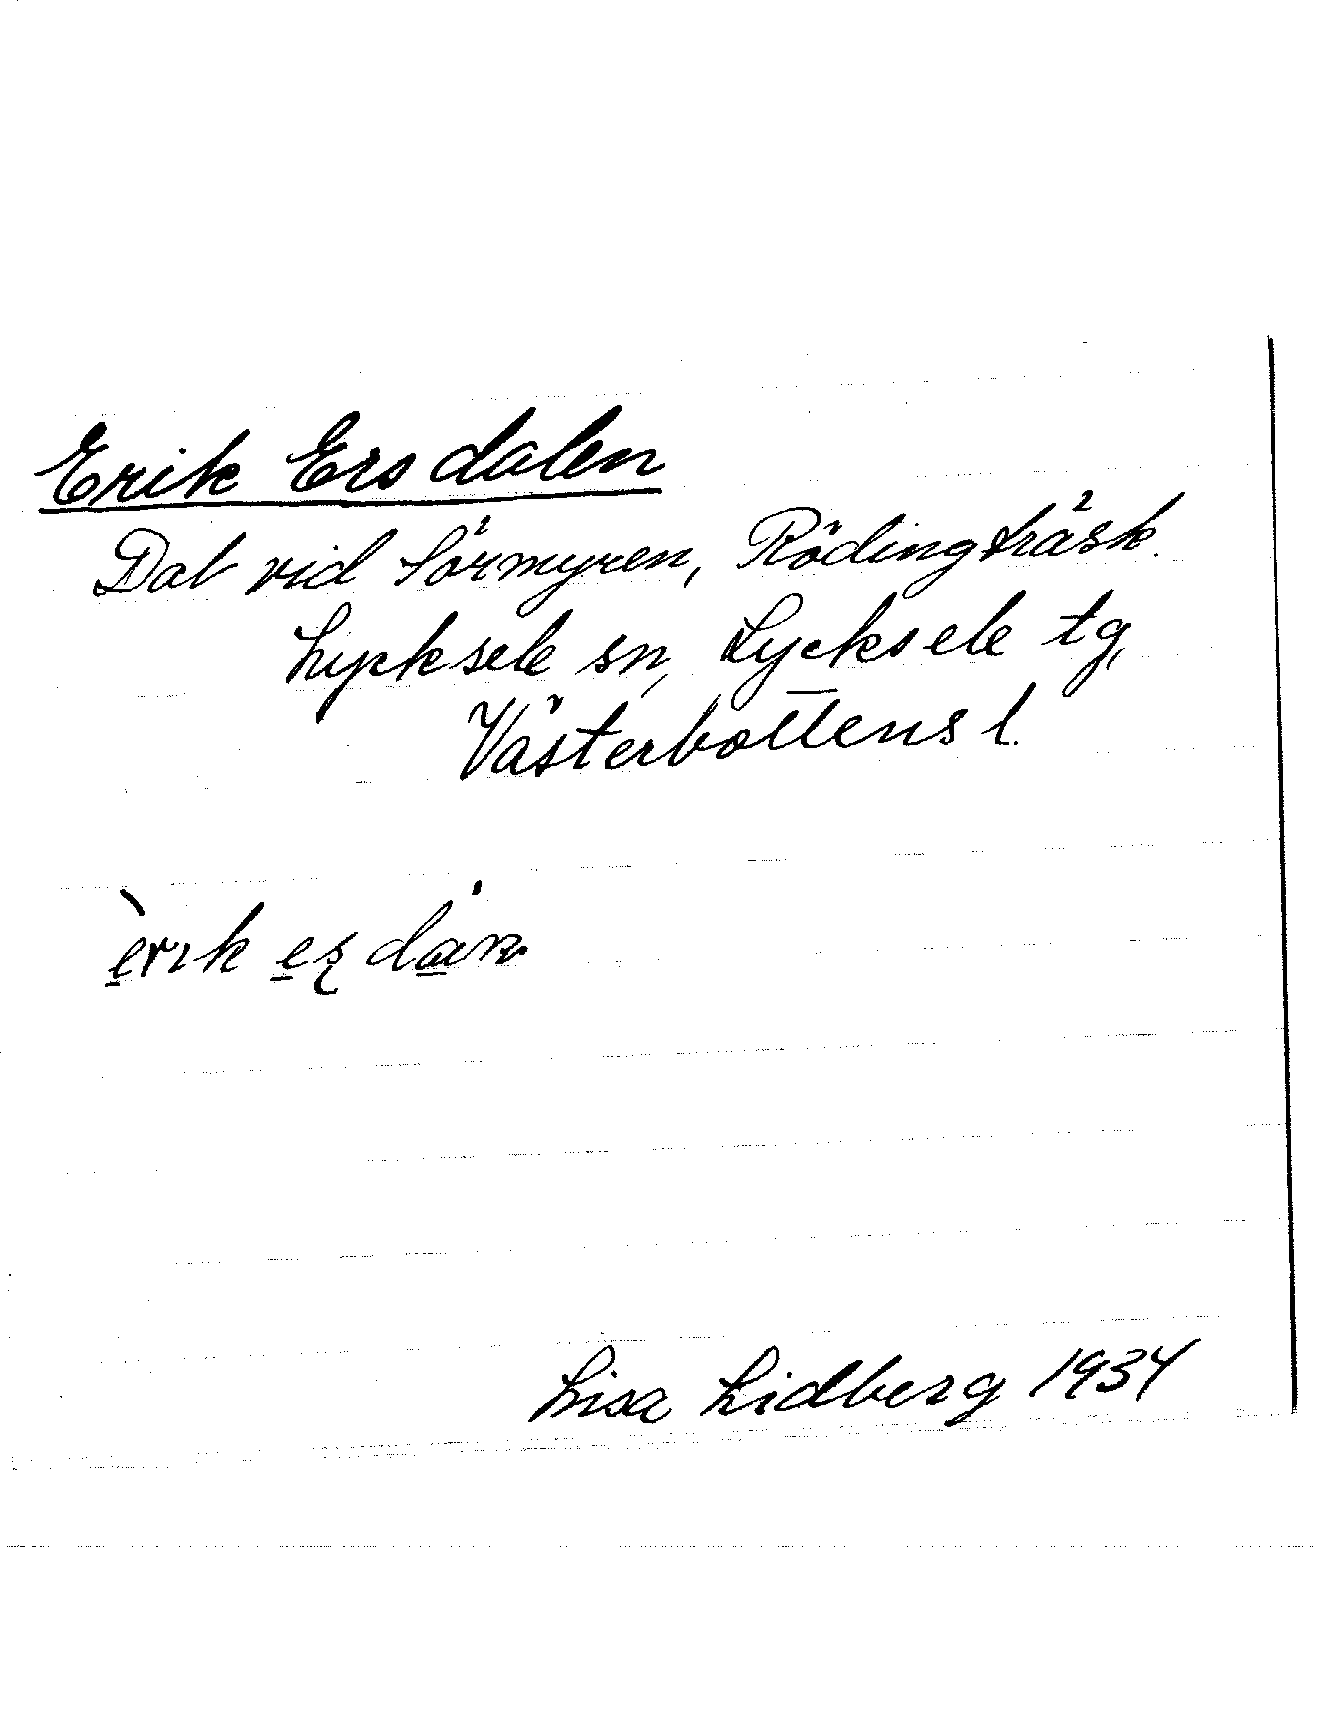 Erik Ersdalen
Dal vid Sörmyren, Rödingträsk.
Lycksele sn, Lycksele tg,
Västerbottens l.
èrik
Lisa Lidberg 1934